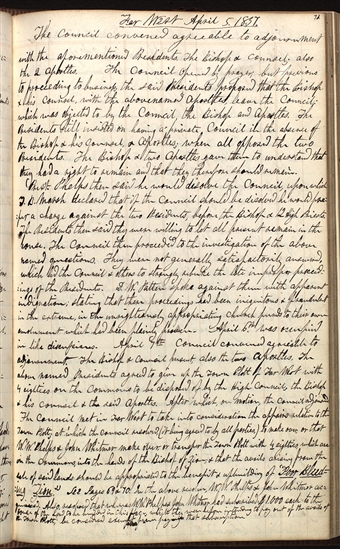 Far West April 5 1837.
The Council convened agreeable to adjournment
with the aforementioned Presidents the Bishop & counsel, also
the 2 Apostles. The Council opened by prayer, but previous
to proceeding to business, the said Presidents proposed that the Bishop
& his Counsel, with the abovenamed Apostles leave the Council;
which was objected to by the Council, the Bishop and Apostles. The
Presidents still insisted on having a private Council in the absence of
the Bishop & his Counsel, & Apostles; when all opposed the two
Presidents. The Bishop & two Apostles gave them to understand that
they had a right to remain and that they therefore should remain.
Prest. Phelps then said he would disolve the Council upon which
T. B. Marsh declared that if the Council should be disolved he would
fer a charge against the two Presidents before the Bishop & 12 High Priests.
The Presidents then said they were willing to let all present remain in the
house. The Council then proceeded to the investigation of the above
named questions. They were not generally satisfactorily answered,
which led the Council & others to strongly rebuke the late improper proceed-
ings of the Presidents. D. W. Patten spoke against them with apparent
indignation; stating that their proceedings had been iniquitous & fraudulent
in the extreme, in unrighteously appropriating church funds to their own
emolument which had been plainly proven. April 6th was occupied
in like
April 7th Council convened agreeable to
adjournment. The Bishop & Counsel ment also the two Apostles. The
above named Presidents agreed to give up the Town Plott of Far West with
4 eighties on the Commons to be disposed of by the High Council, the Bishop
& his Counsel & the said Apostles. After which, on Motion, the Council adjourned
The Council met in Far West to take into consideration the affairs relative to the
Town Plott, at which the Council resolved (it being agreed to by all parties,) to make over or that
W. W. Phelps & John Whitmer make over or transfer the Town Plott with 4 eighties which are
on the Commons into the hands of the Bishop of Zion & that the avails arising from the
sale of said lands should be appropriated to the benefit & upbuilding of "Poor Bleed-
ing Zion" See Page 69 & 70. In the above
Also resolved that
of the